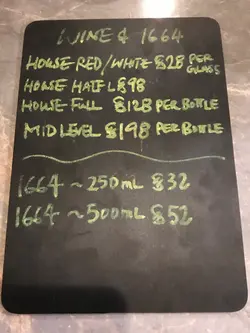 WINE & 1664
HOUSE RED/WHITE $28 PER GLASS
HOUSE HALF L $98
HOUSE FULL $128 PER BOTTLE
MID LEVEL $198 PER BOTTLE
1664 ~ 250ML $32
1664 ~ 500ML $52